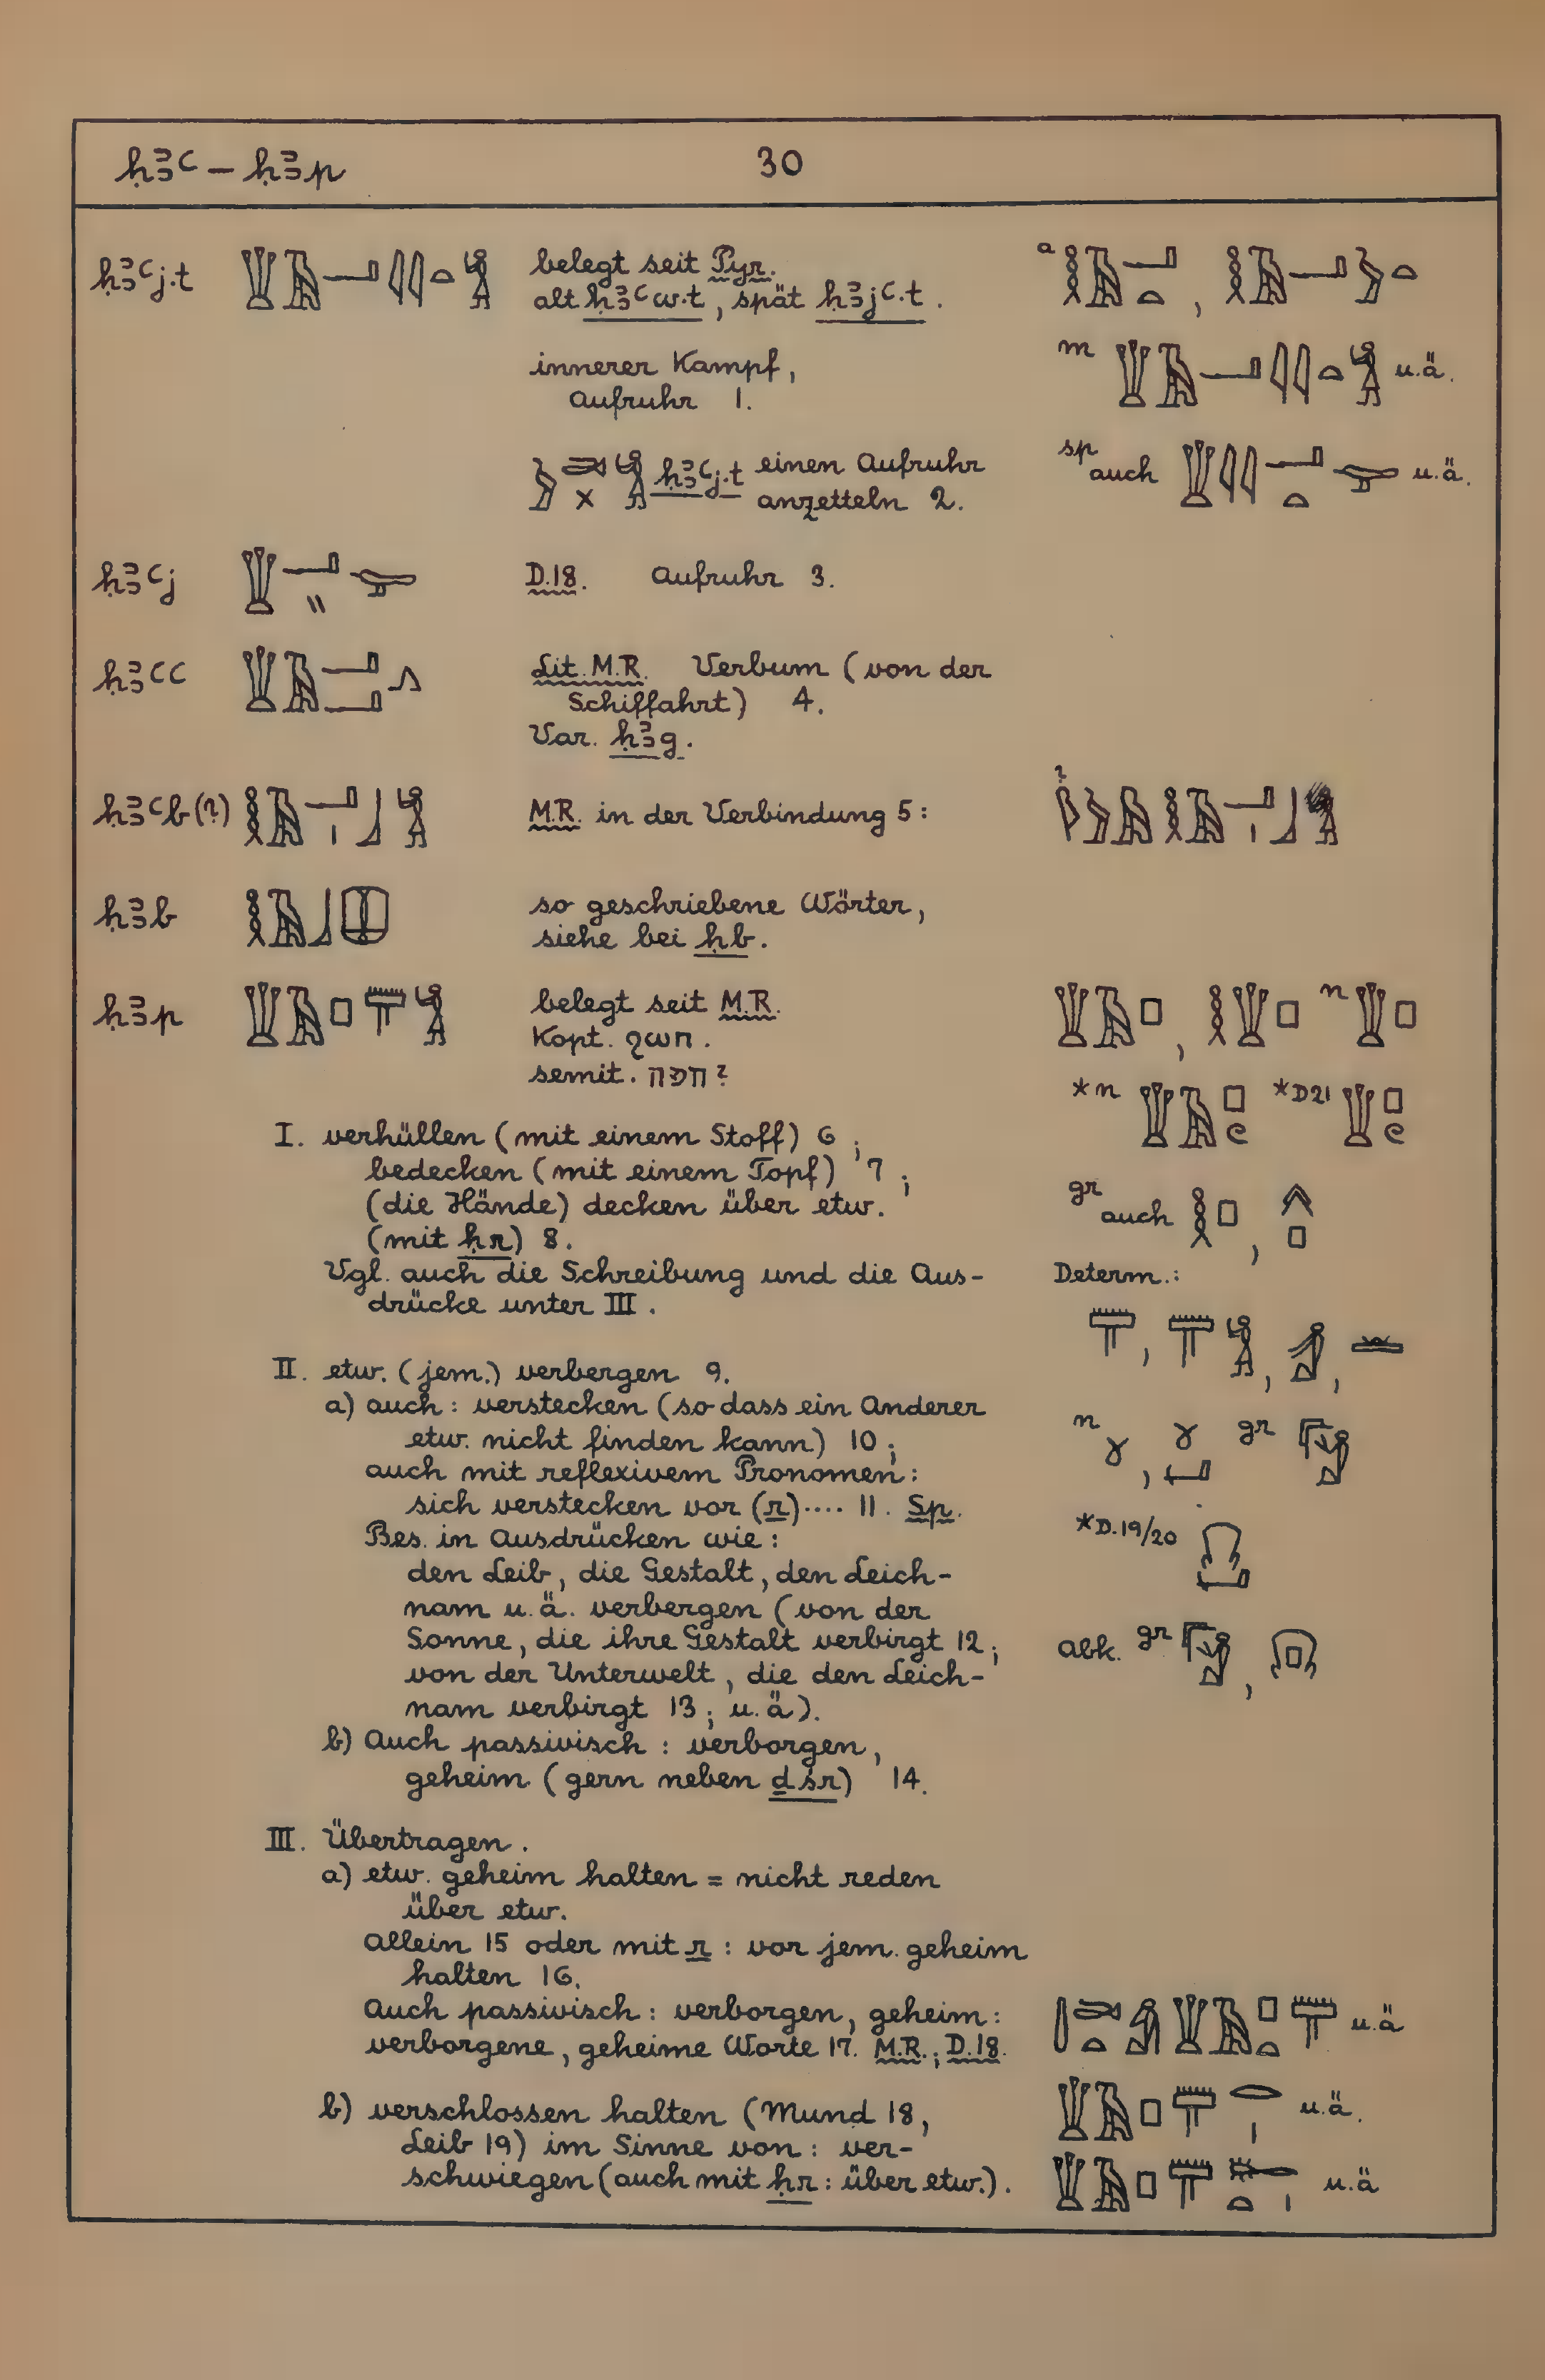 ḥꜣꜥ – ḥꜣp 30
ḥꜣꜥj.t belegt seit Pyr.
alt ḥꜣꜥw.t, spät ḥꜣjꜥ.t.
a
innerer Kampf,
Aufruhr 1.
m u.ä.
ḥꜣꜥj.t einen Aufruhr
anzetteln 2.
sp auch u.ä.
ḥꜣꜥj D.18. Aufruhr 3.
ḥꜣꜥꜥ Lit. M.R. Verbum (von der
Schiffahrt) 4.
Var. ḥꜣg.
ḥꜣꜥb(?) M.R. in der Verbindung 5: ?
ḥꜣb so geschriebene Wörter,
siehe bei ḥb.
ḥꜣp belegt seit M.R.
Kopt. ϩωπ.
semit. חפה?
n
*n *D21
I. verhüllen (mit einem Stoff) 6;
bedecken (mit einem Topf) 7;
(die Hände) decken über etw.
(mit ḥr) 8.
gr auch
Vgl. auch die Schreibung und die Aus-
drücke unter III.
Determ.:
II. etw. (jem.) verbergen 9.
a) auch: verstecken (so dass ein Anderer
etw. nicht finden kann) 10;
n gr
auch mit reflexivem Pronomen:
sich verstecken vor (r).... 11. Sp.
Bes. in Ausdrücken wie:
*D.19/20
den Leib, die Gestalt, den Leich-
nam u.ä. verbergen (von der
Sonne, die ihre Gestalt verbirgt 12;
Abk. gr
von der Unterwelt, die den Leich-
nam verbirgt 13; u.ä).
b) Auch passivisch: verborgen,
geheim (gern neben ḏśr) 14.
III. Übertragen.
a) etw. geheim halten = nicht reden
über etw.
Allein 15 oder mit r: vor jem. geheim
halten 16.
Auch passivisch: verborgen, geheim:
verborgene, geheime Worte 17. M.R.; D.18. u.ä
b) verschlossen halten (Mund 18, u.ä.
Leib 19) im Sinne von: ver-
schwiegen (auch mit ḥr: über etw.). u.ä